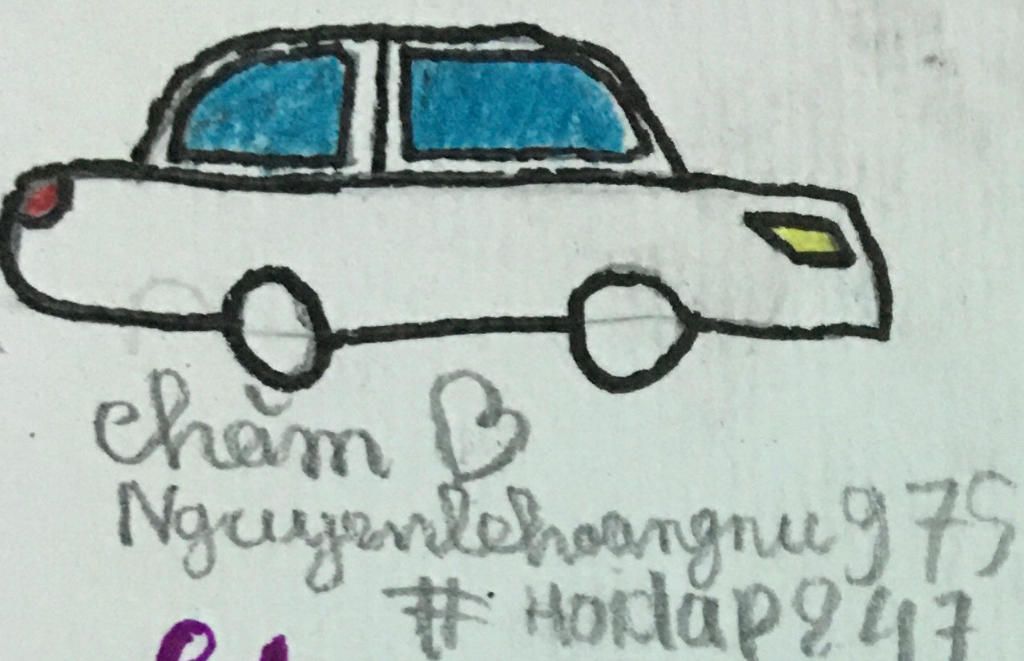 chàm
Nguyenlehoangnu975
# Hoidap247